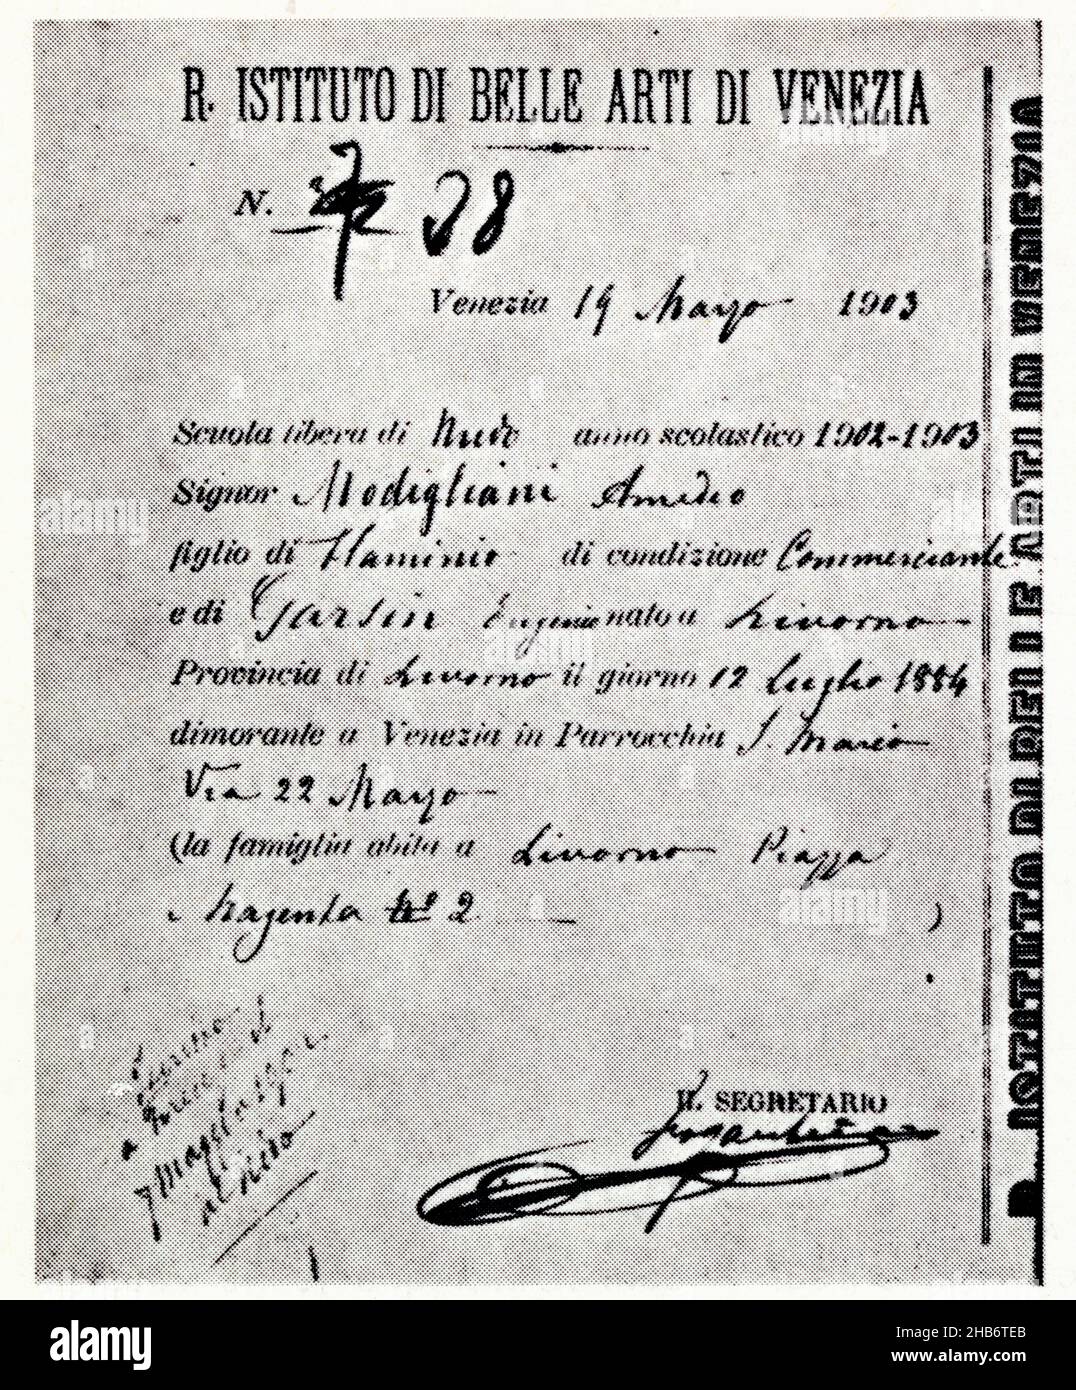 R. ISTITUTO DI BELLE ARTI DI VENEZIA
N. 38
Venezia 19 Marzo 1903
Scuola libera di Nudo anno scolastico 1902-1903
Signor Modigliani Amedeo
figlio di Flaminio di condizione Commerciante
e di Garsin Eugenia nato a Livorno
Provincia di Livorno il giorno 12 Luglio 1884
dimorante a Venezia in Parrocchia S. Marco
Via 22 Marzo
(la famiglia abita a Livorno Piazza
Magenta No 2 )
a Firenze il
7 Maggio 1902
al
IL SEGRETARIO
R. ISTITUTO DI BELLE ARTI DI VENEZIA
alamy
Image ID: 2HB6TEB
www.alamy.com